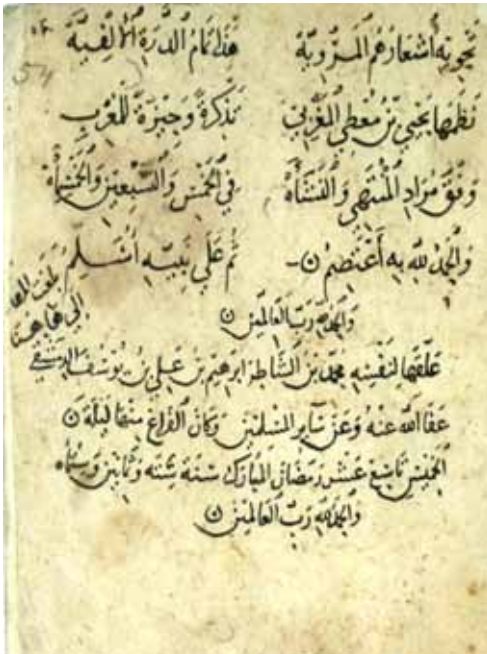 ٥٤
54
تحويه أشعارهم المروية هذا تمام الدرة الألفية
نظمها يحيى بن معطي المغربي تذكرة وجيزة للمعرب
وفق مراد المنتهى والنشأة في الخمس والسبعين والخمسمأة
والحمد لله به أعتصم ثم على نبيه أسلم
والحمد لله رب العالمين
علقها لنفسه محمد بن الشاطه ابرهيم بن علي بن يوسف
عفا الله عنه وعن ساير المسلمين وكان الفراغ منها ليلة
الخميس تاسع عشر رمضان المبارك سنة ستة وثمانين وستمأه
والحمد لله رب العالمين
بلغت
إلى هاهنا